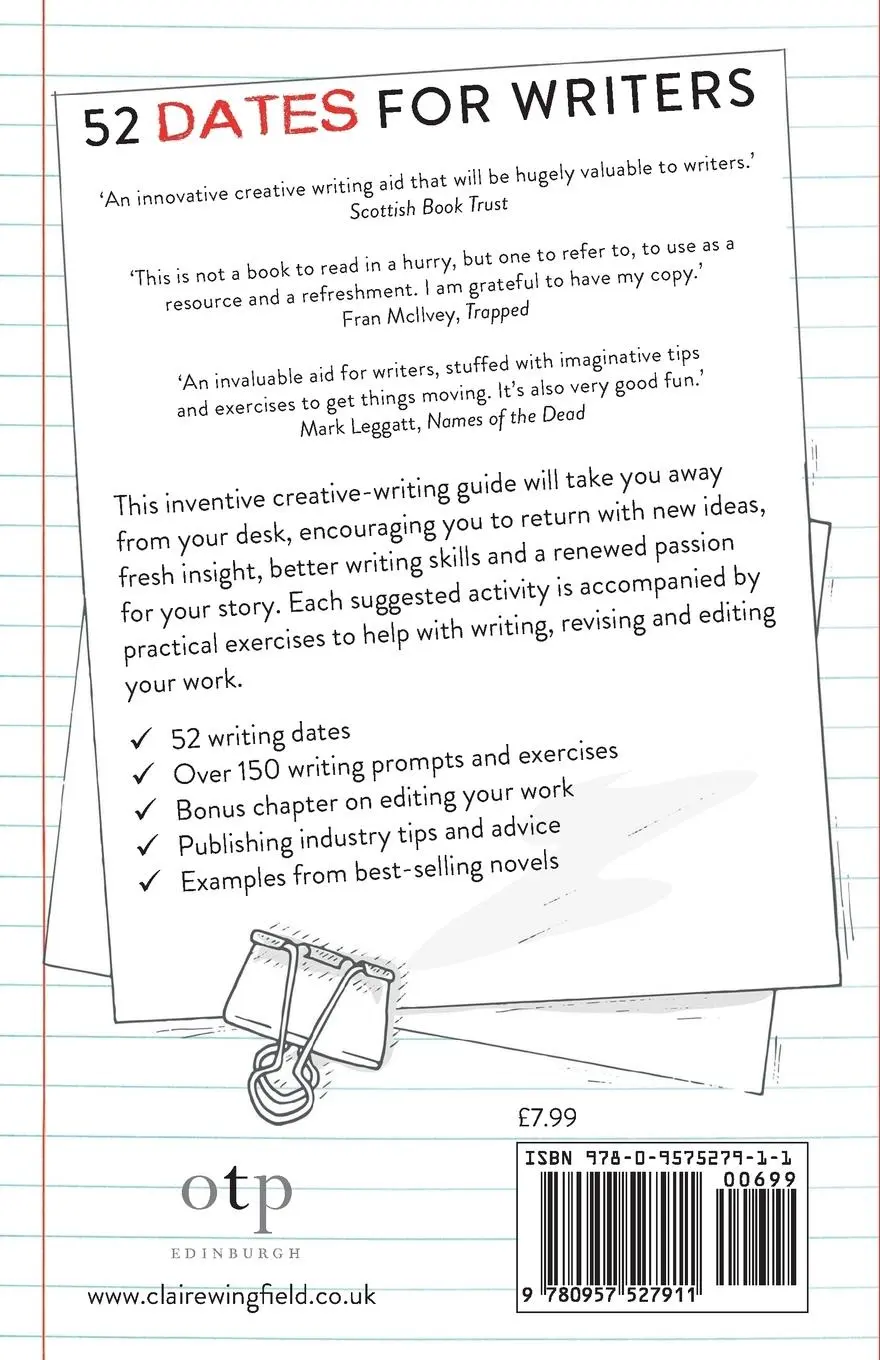 52 DATES FOR WRITERS
‘An innovative creative writing aid that will be hugely valuable to writers.’
Scottish Book Trust
‘This is not a book to read in a hurry, but one to refer to, to use as a
resource and a refreshment. I am grateful to have my copy.’
Fran McIlvey, Trapped
‘An invaluable aid for writers, stuffed with imaginative tips
and exercises to get things moving. It’s also very good fun.’
Mark Leggatt, Names of the Dead
This inventive creative-writing guide will take you away
from your desk, encouraging you to return with new ideas,
fresh insight, better writing skills and a renewed passion
for your story. Each suggested activity is accompanied by
practical exercises to help with writing, revising and editing
your work.
✓ 52 writing dates
✓ Over 150 writing prompts and exercises
✓ Bonus chapter on editing your work
✓ Publishing industry tips and advice
✓ Examples from best-selling novels
£7.99
ISBN 978-0-9575279-1-1
00699
9 780957 527911
otp
EDINBURGH
www.clairewingfield.co.uk